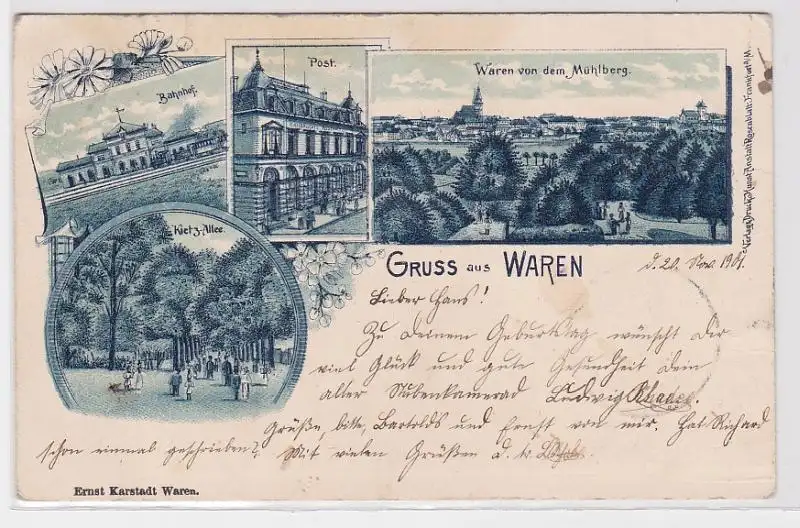 Bahnhof.
Post.
Waren von dem Mühlberg.
Kietz-Allee.
Verlag u. Druck v. Kunst-Anstalt Rosenblatt, Frankfurt a/M.
GRUSS aus WAREN
d. 20. Nov. 1901.
Lieber Hans!
Zu deinem Geburtstag wünscht Dir
viel Glück und gute Gesundheit Dein
alter Stubenkamerad Ludwig
Grüße, bitte, Bartolds und Ernst von mir. Hat Richard
schon einmal geschrieben? Mit vielen Grüßen d.
Ernst Karstadt Waren.